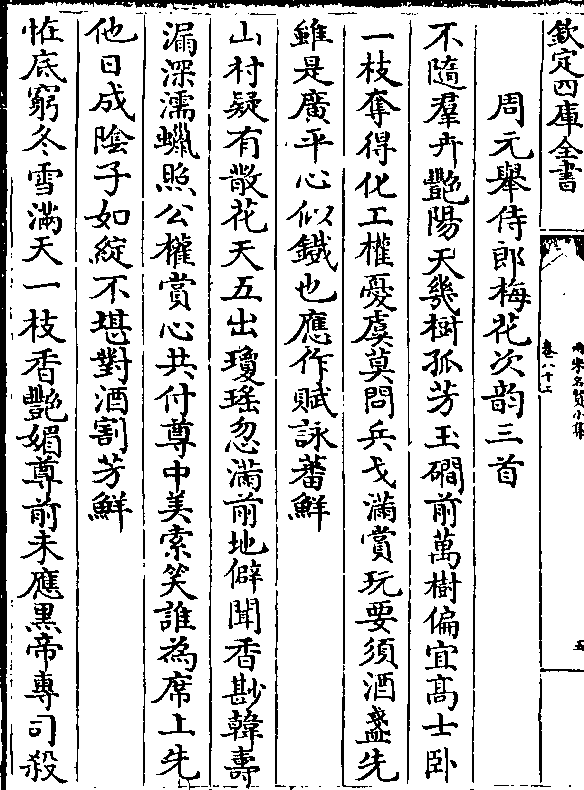 欽定四庫全書
兩宋名賢小集
卷八十二
五
周元舉侍郎梅花次韵三首
不隨羣卉艷陽天幾樹孤芳玉磵前萬樹偏宜髙士卧
一枝奪得化工權憂虞莫問兵戈滿賞玩要須酒盞先
雖是廣平心似鐡也應作賦詠蕃鮮
山村疑有散花天五出瓊瑤忽滿前地僻聞香尠韓壽
漏深濡蠟照公權賞心共付尊中美索笑誰為席上先
他日成隂子如綻不堪對酒割芳鮮
恠底窮冬雪滿天一枝香艷媚尊前未應黒帝專司殺